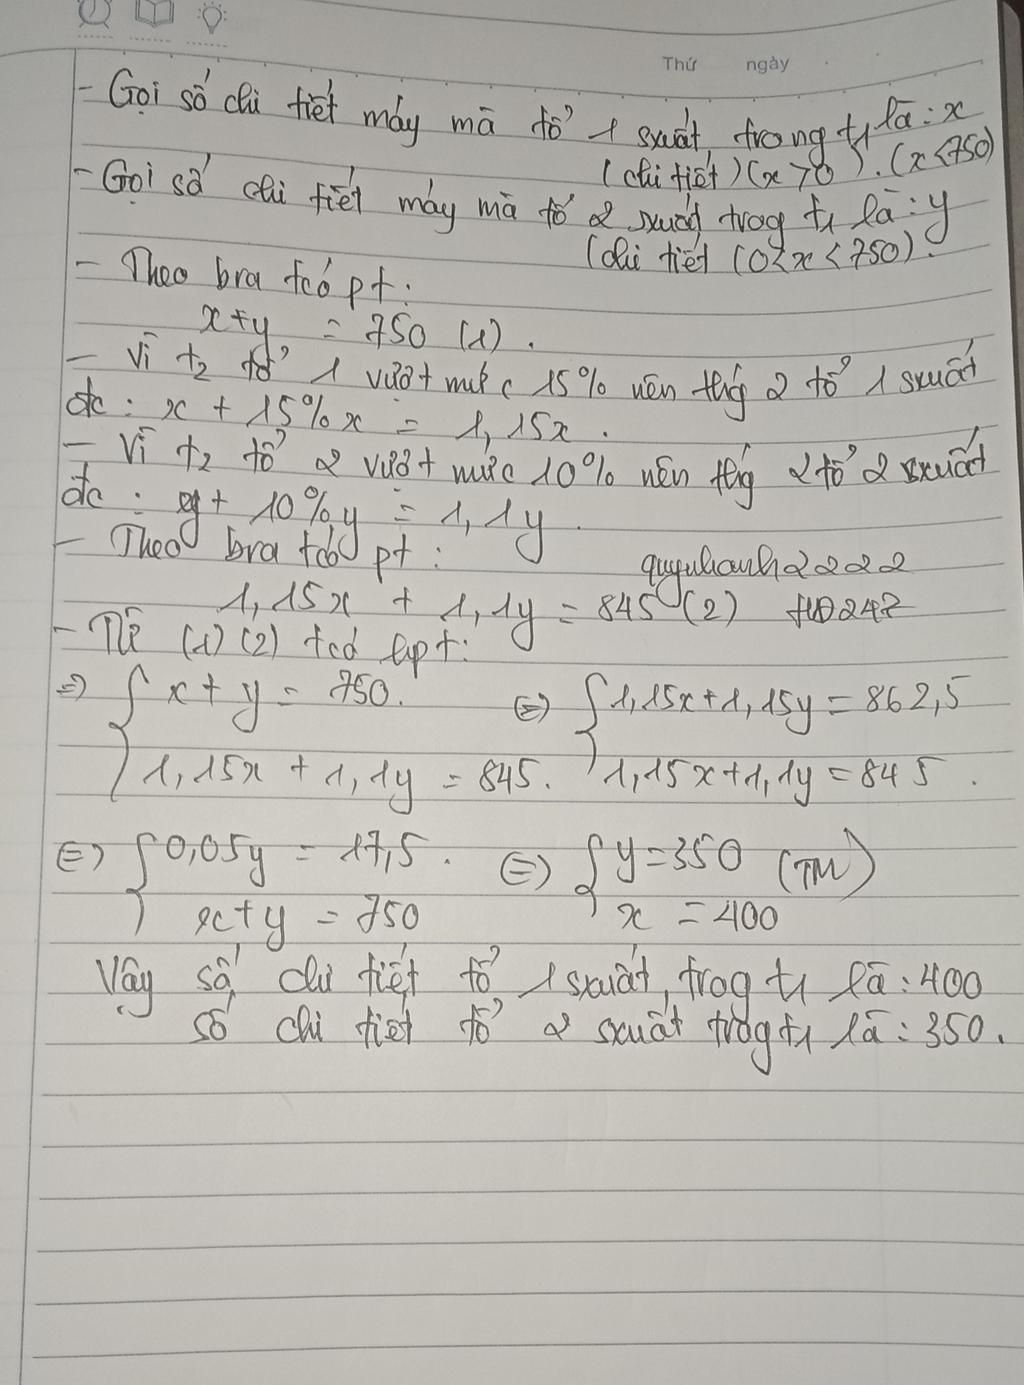 Thứ ngày
- Gọi số chi tiết máy mà tổ 1 sxuất trong t1 là: x
(chi tiết) (x>0). (x<750)
- Gọi số chi tiết máy mà tổ 2 sxuất trog t1 là: y
(chi tiết (0<x<750).
- Theo bra tcó pt:
x+y = 750 (1).
- Vì t2 tổ 1 vượt mức 15% nên thg 2 tổ 1 sxuất
đc: x + 15%x = 1,15x.
- Vì t2 tổ 2 vượt mức 10% nên thg 2 tổ 2 sxuất
đc: y + 10%y = 1,1y.
- Theo bra tcó pt:
quyuhanh2222
1,15x + 1,1y = 845 (2) 
- Từ (1) (2) tcó hpt:
=> { x + y = 750. <=> { 1,15x+1,15y = 862,5
1,15x + 1,1y = 845. 1,15x+1,1y = 845.
<=> { 0,05y = 17,5. <=> { y=350 (TM)
x+y = 750 x = 400
Vậy số chi tiết tổ 1 sxuất trog t1 là: 400
số chi tiết tổ 2 sxuất trog t1 là: 350.